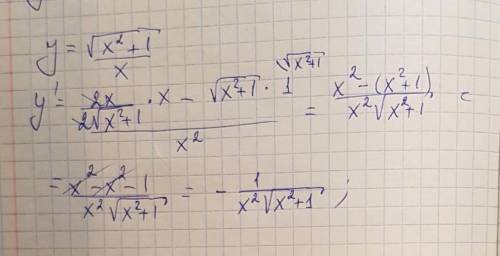 y = √(x²+1) / x
y' = (2x / 2√(x²+1) · x − √(x²+1) · 1 √(x²+1)) / x² = (x² − (x²+1)) / (x²√(x²+1)) =
= (x² − x² − 1) / (x²√(x²+1)) = − 1 / (x²√(x²+1)) ;